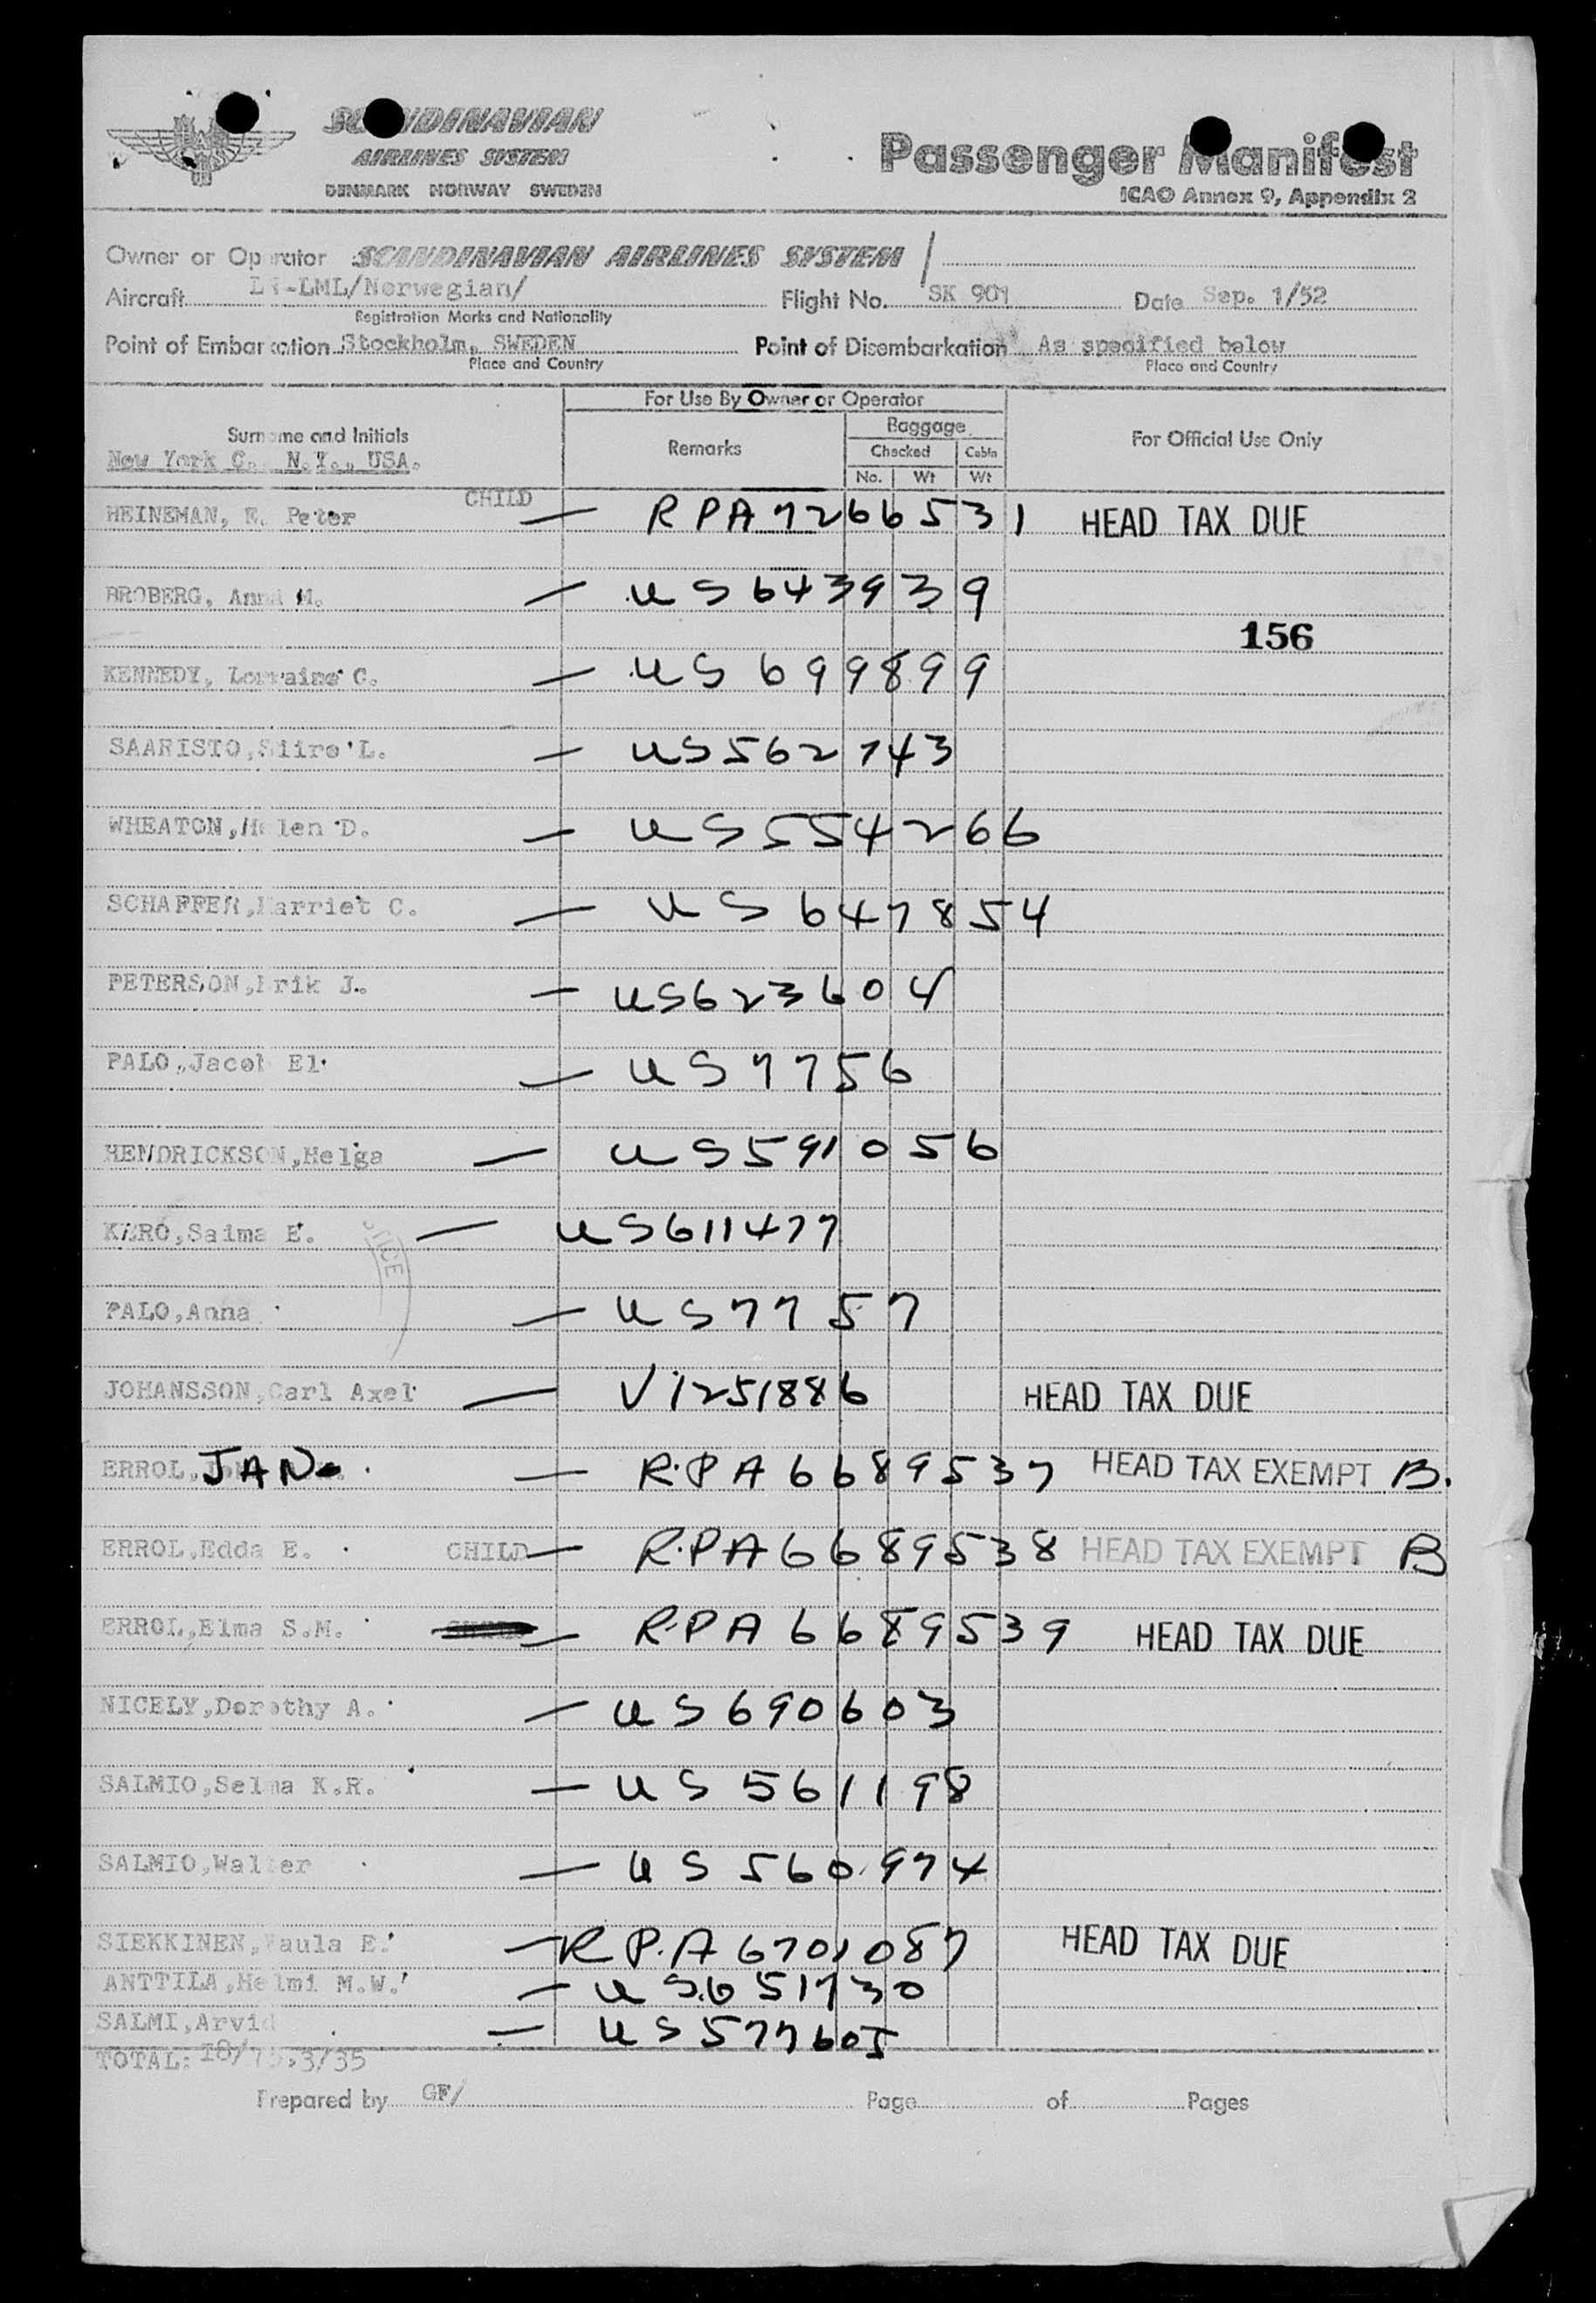 SCANDINAVIAN
AIRLINES SYSTEM
DENMARK NORWAY SWEDEN
Passenger Manifest
ICAO Annex 9, Appendix 2
Owner or Operator SCANDINAVIAN AIRLINES SYSTEM /
Aircraft LN-LML/Norwegian/ Flight No. SK 901 Date Sep. 1/52
Registration Marks and Nationality
Point of Embarkation Stockholm, SWEDEN Point of Disembarkation As specified below
Place and Country Place and Country
For Use By Owner or Operator
Surname and Initials Remarks Baggage For Official Use Only
Checked Cabin
New York C. N.Y., USA. No. Wt Wt
HEINEMAN, E. Peter CHILD — RPA7266531 HEAD TAX DUE
BROBERG, Anna M. — US643939
156
KENNEDY, Lorraine C. — US699899
SAARISTO, Siiro L. — US562743
WHEATON, Helen D. — US554266
SCHAFFER, Harriet C. — US647854
PETERSON, Erik J. — US623604
PALO, Jacob El — US7756
HENDRICKSON, Helga — US591056
KERO, Saima E. — US611477
PALO, Anna — US7757
JOHANSSON, Carl Axel — V1251886 HEAD TAX DUE
ERROL, JAN — R.P.A 6689537 HEAD TAX EXEMPT B.
ERROL, Edda E. CHILD — R.P.A 6689538 HEAD TAX EXEMPT B
ERROL, Elma S.M. — R.P.A 6689539 HEAD TAX DUE
NICELY, Dorothy A. — US690603
SALMIO, Selma K.R. — US561198
SALMIO, Walter — US560974
SIEKKINEN, Paula E. — R.P.A 6701087 HEAD TAX DUE
ANTTILA, Helmi M.W. — US651730
SALMI, Arvid — US577605
TOTAL: 18/ .3/35
Prepared by GF/ Page of Pages